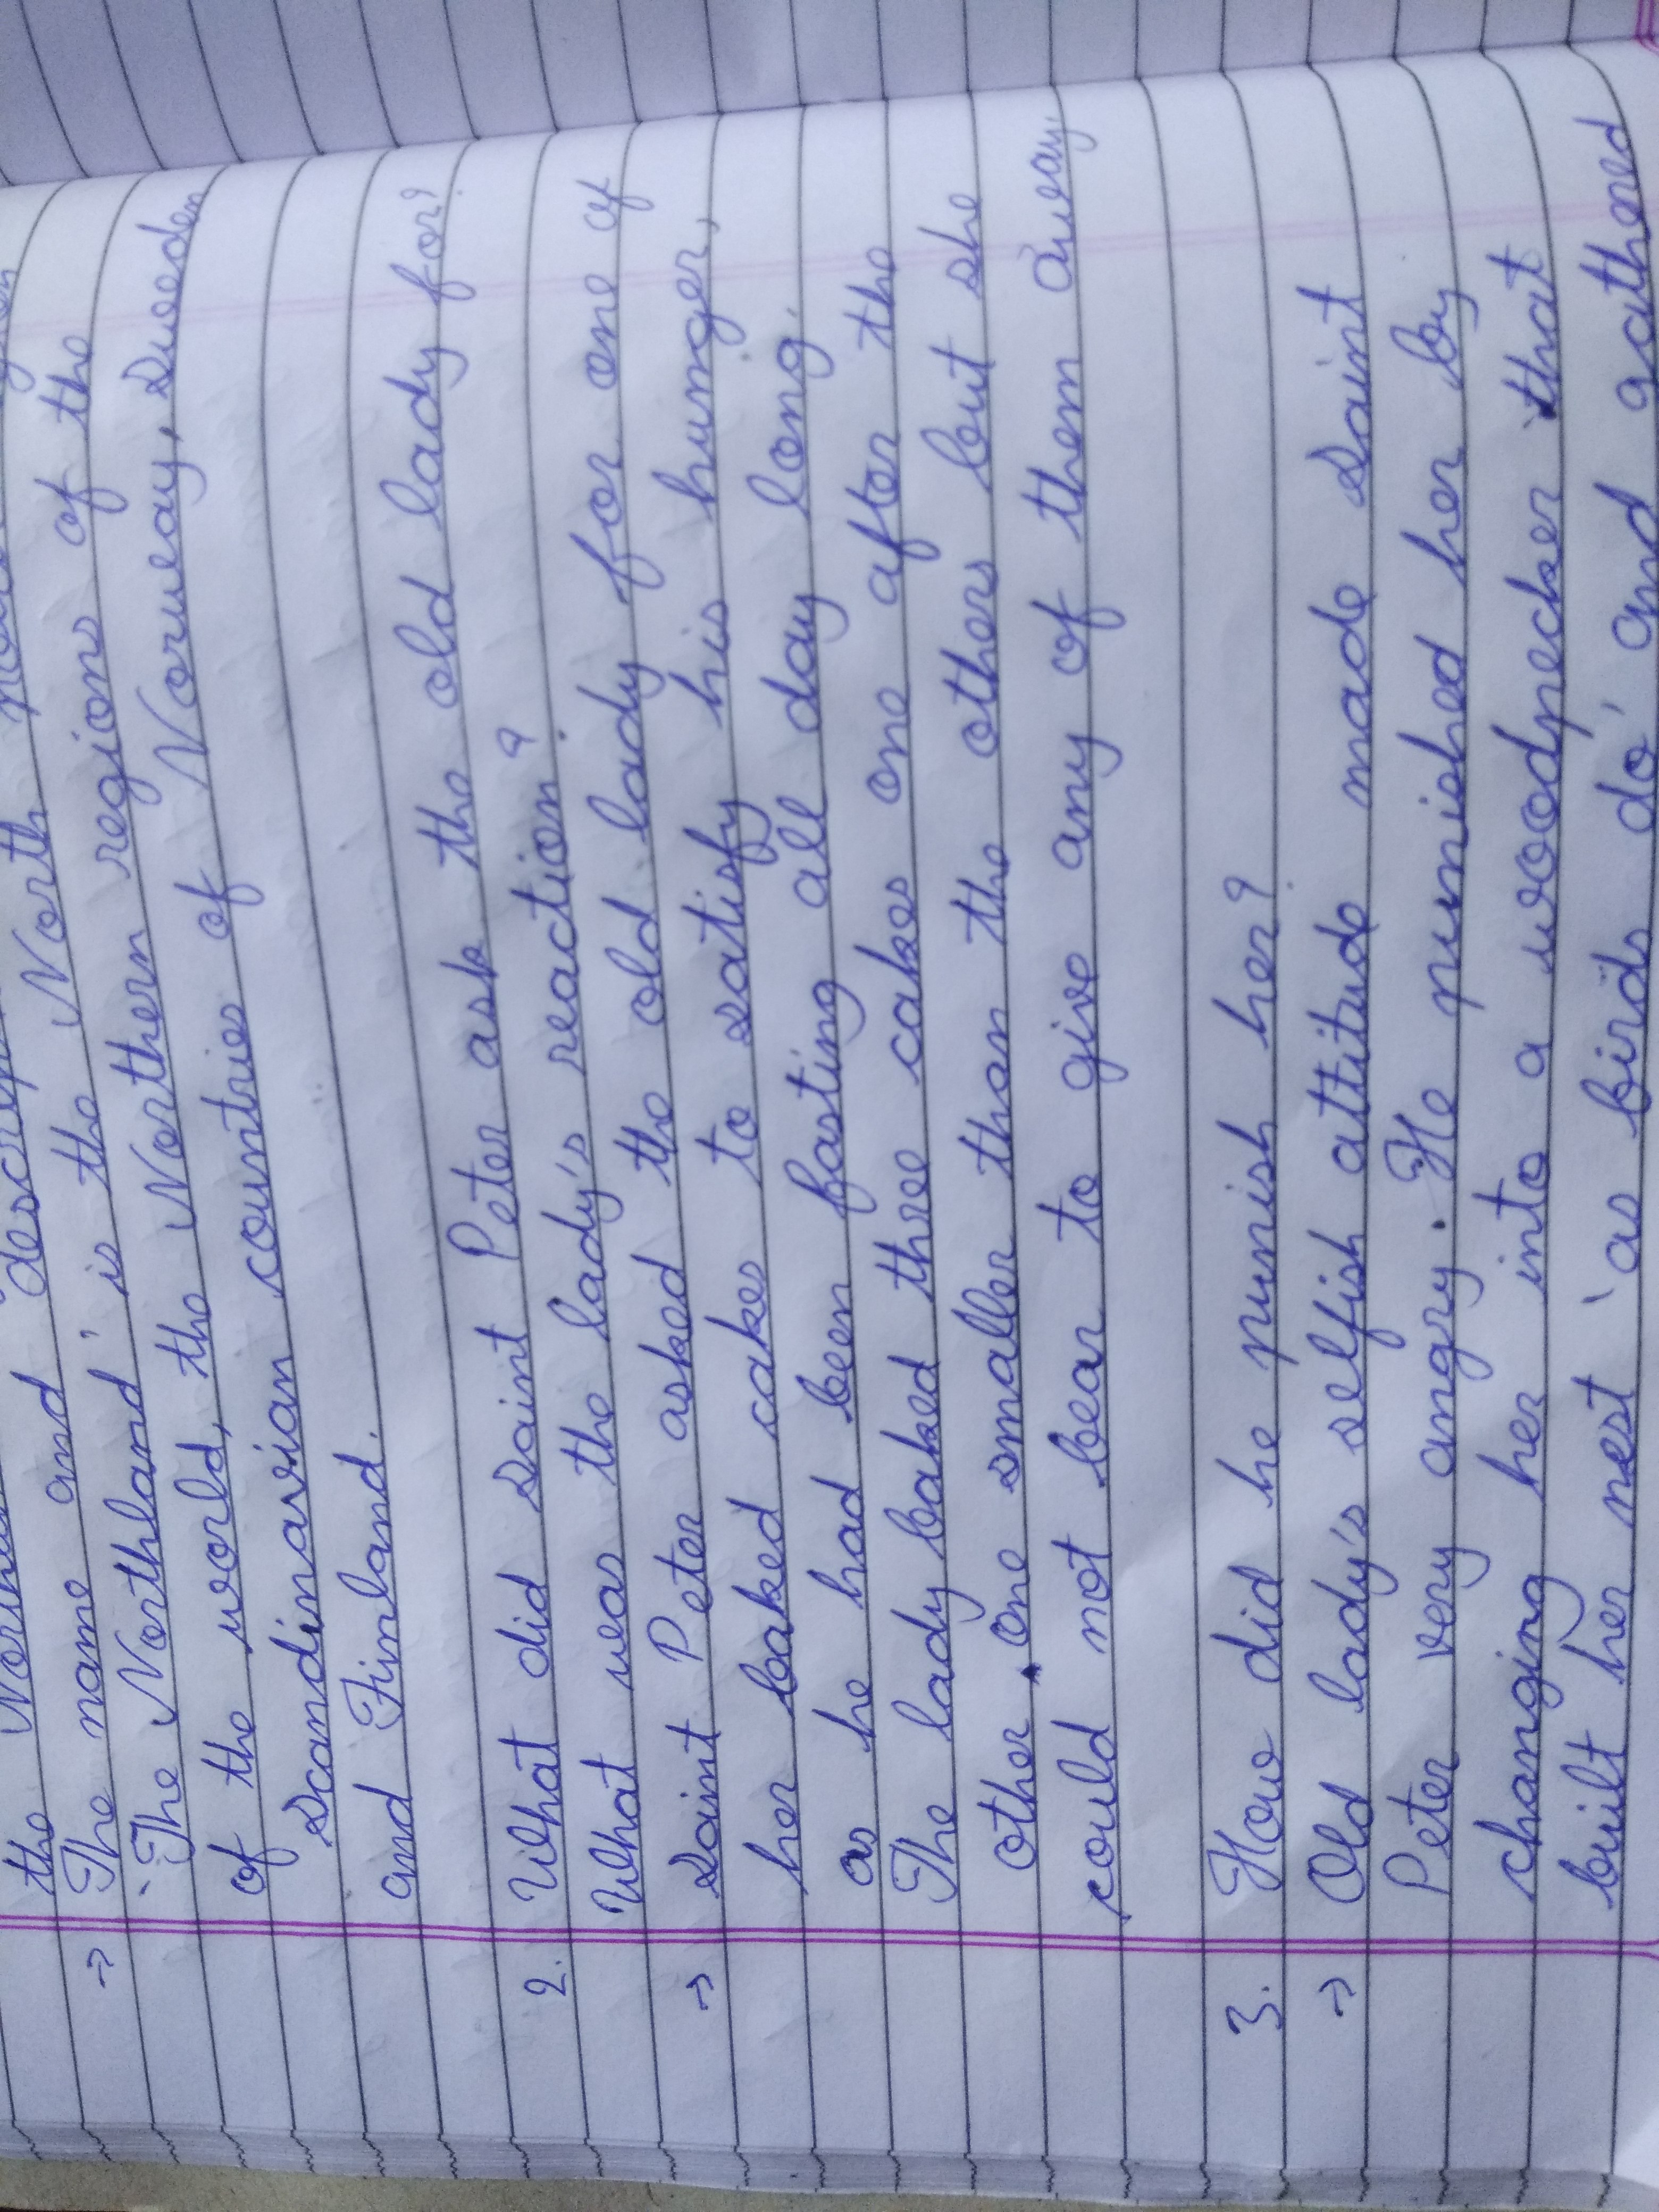 the descrip North
The name and is the North of the
'The Northland' is the Northern regions of the
of the world, the Northern countries of Norway, Sweden
Scandinavian countries of
and Finland.
2. What did Saint Peter ask the old lady for?
What was the lady's reaction?
→ Saint Peter asked the old lady for one of
her baked cakes to satisfy his hunger,
as he had been fasting all day long.
The lady baked three cakes one after the
other. One smaller than the others but she
could not bear to give any of them away.
3. How did he punish her?
→ Old lady's selfish attitude made Saint
Peter very angry. He punished her by
changing her into a woodpecker that
built her nest 'as birds do', and gathered